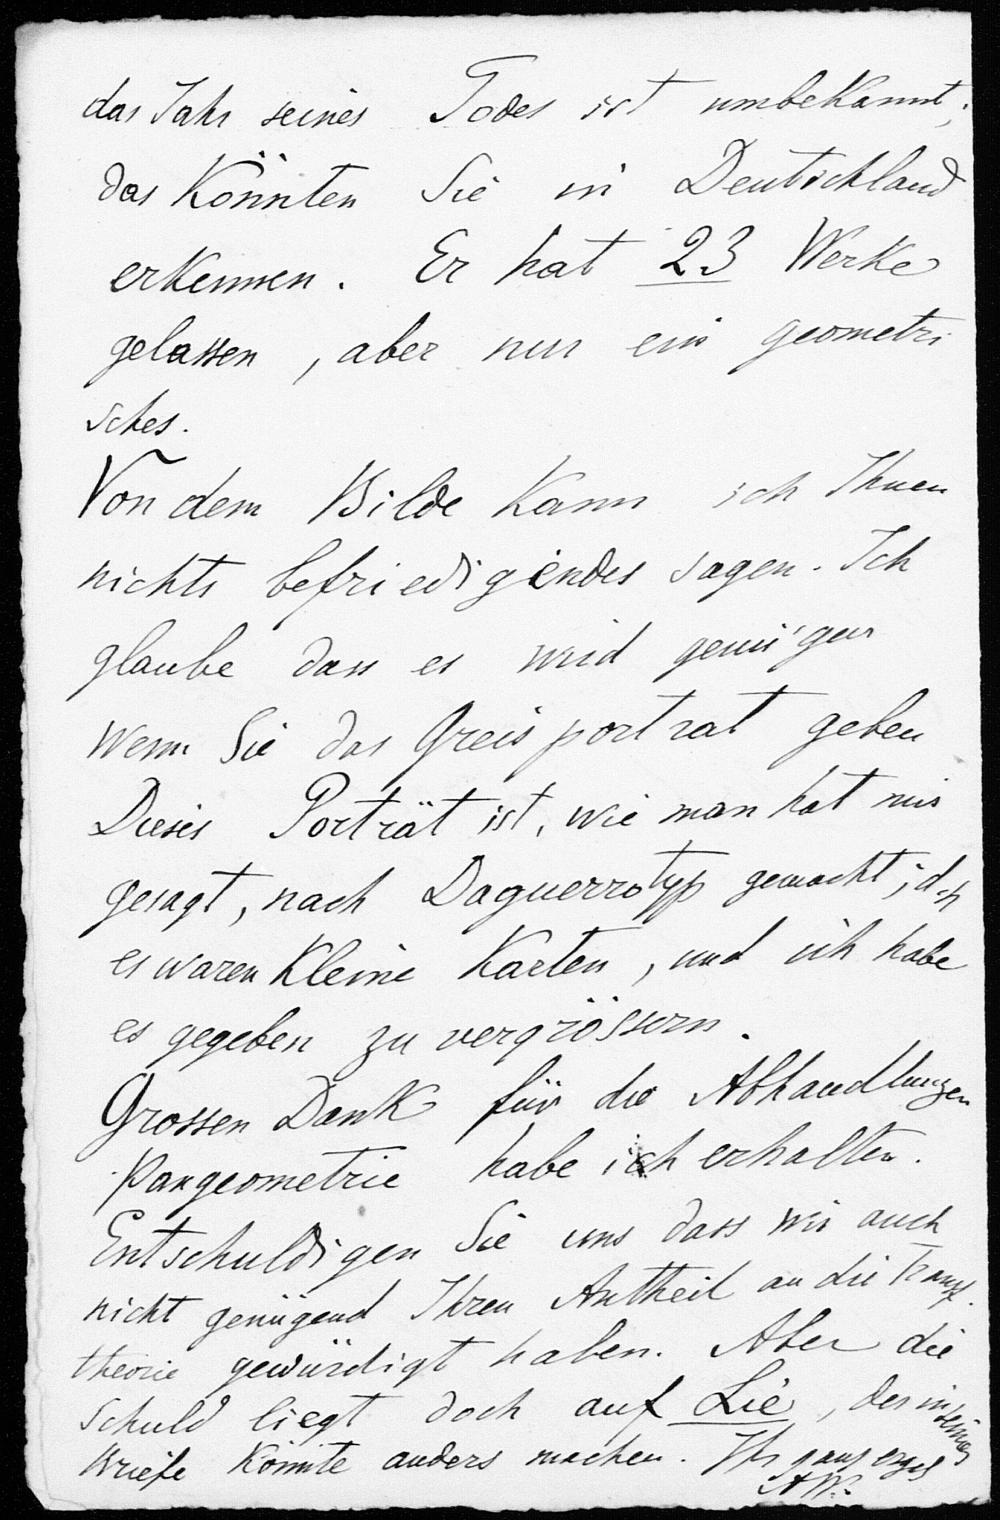 das Jahr seines Todes ist umbekannt,
das Könnten Sie in Deutschland
erkennen. Er hat 23 Werke
gelassen, aber nur ein geometri
sches.
Von dem Bilde kann ich Ihnen
nichts befriedigendes sagen. Ich
glaube dass es wird genügen
wenn Sie das Greisportrat geben
Dieses Porträt ist, wie man hat mir
gesagt, nach Daguerrotyp gemacht;
es waren Kleine Karten, und ich habe
es gegeben zu vergrössern.
Grossen Dank für die Abhandlungen
Pangeometrie habe ich erhalten.
Entschuldigen Sie uns dass wir auch
nicht genügend Ihren Antheil an die Transf.
theorie gewürdigt haben. Aber die
Schuld liegt doch auf Lie, der in seinem
Briefe könnte anders machen. Ihr ganz ergeb
AW.